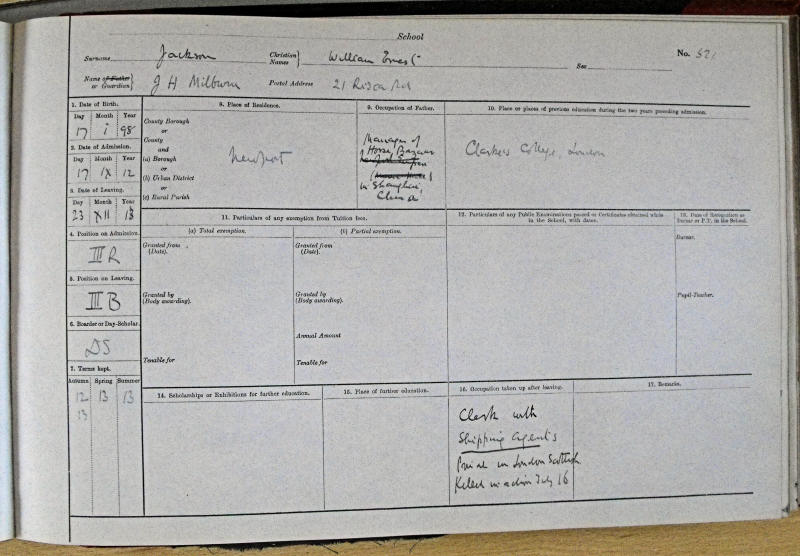 School
Surname Jackson Christian Names William Ernest Sex No. 521
Name of Father or Guardian J H Milburn Postal Address 21 Risca Rd
1. Date of Birth.
Day Month Year
17 i 98
2. Date of Admission.
Day Month Year
17 IX 12
3. Date of Leaving.
Day Month Year
23 XII 13
4. Position on Admission.
III R
5. Position on Leaving.
III B
6. Boarder or Day-Scholar.
DS
7. Terms kept.
Autumn Spring Summer
12 13 13
13
8. Place of Residence.
County Borough
or
County
and
(a) Borough
or
(b) Urban District
or
(c) Rural Parish
Newport
9. Occupation of Father.
Manager of
Horse Bazaar
in Shanghai,
China
10. Place or places of previous education during the two years preceding admission.
Clarkes College, London
11. Particulars of any exemption from Tuition fees.
(a) Total exemption.
Granted from
(Date).
Granted by
(Body awarding).
Tenable for
(b) Partial exemption.
Granted from
(Date).
Granted by
(Body awarding).
Annual Amount
Tenable for
12. Particulars of any Public Examinations passed or Certificates obtained while
in the School, with dates.
13. Date of Recognition as
Bursar or P.T. in the School.
Bursar.
Pupil-Teacher.
14. Scholarships or Exhibitions for further education.
15. Place of further education.
16. Occupation taken up after leaving.
Clerk with
Shipping Agents
Private in London Scottish
Killed in action July 16
17. Remarks.